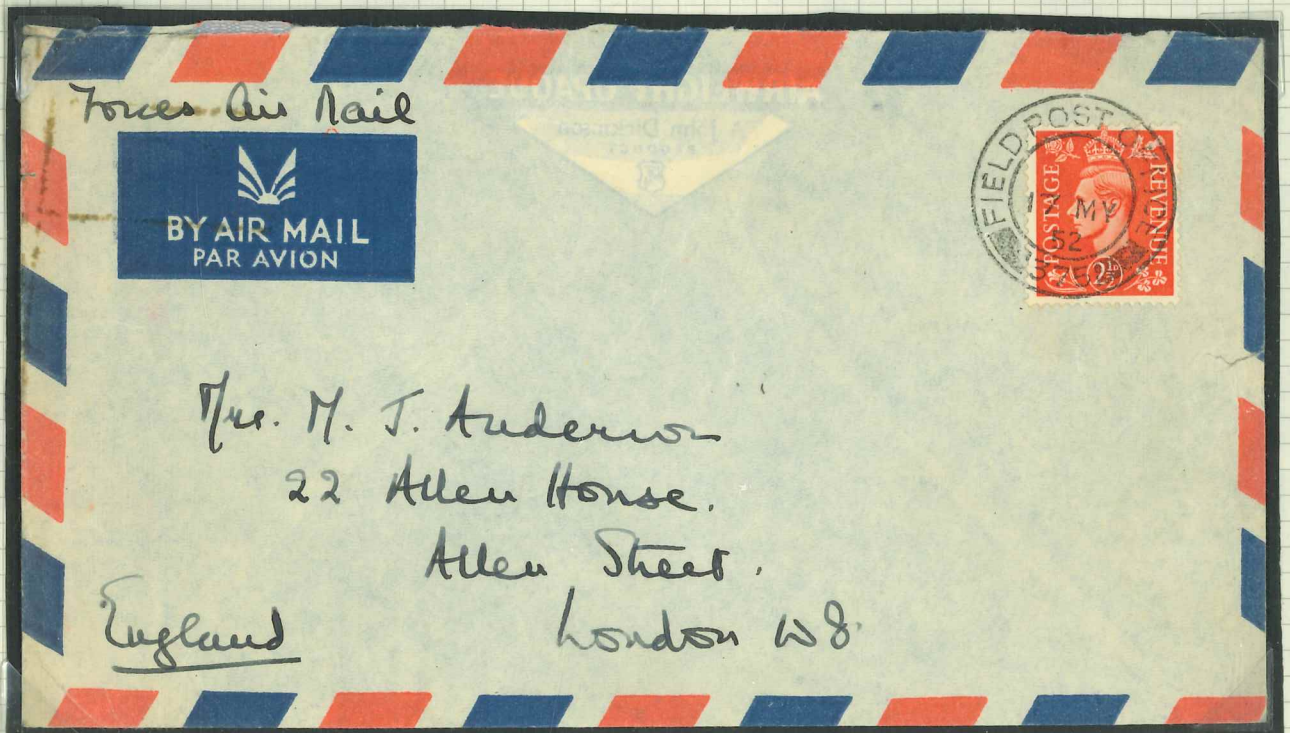 Forces Air Mail
BY AIR MAIL
PAR AVION
FIELD POST OFFICE
MY
52
POSTAGE
REVENUE
2½D
Mrs. M. J. Anderson
22 Allen House.
Allen Street.
London W8.
England